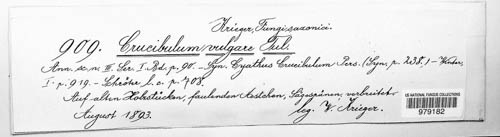 Krieger, Fungi saxonici.
909. Crucibulum vulgare Tul.
Ann. sc. n. III. Ser. I. Bd. p. 90. – Syn. Cyathus Crucibulum Pers. (Syn. p. 238.) – Winter,
I. p. 919. – Schröter l. c. p. 708.
Auf alten Holzstücken, faulenden Aestchen, Sägespänen, verbreitet.
August 1893. leg. W. Krieger.
US NATIONAL FUNGUS COLLECTIONS
979182